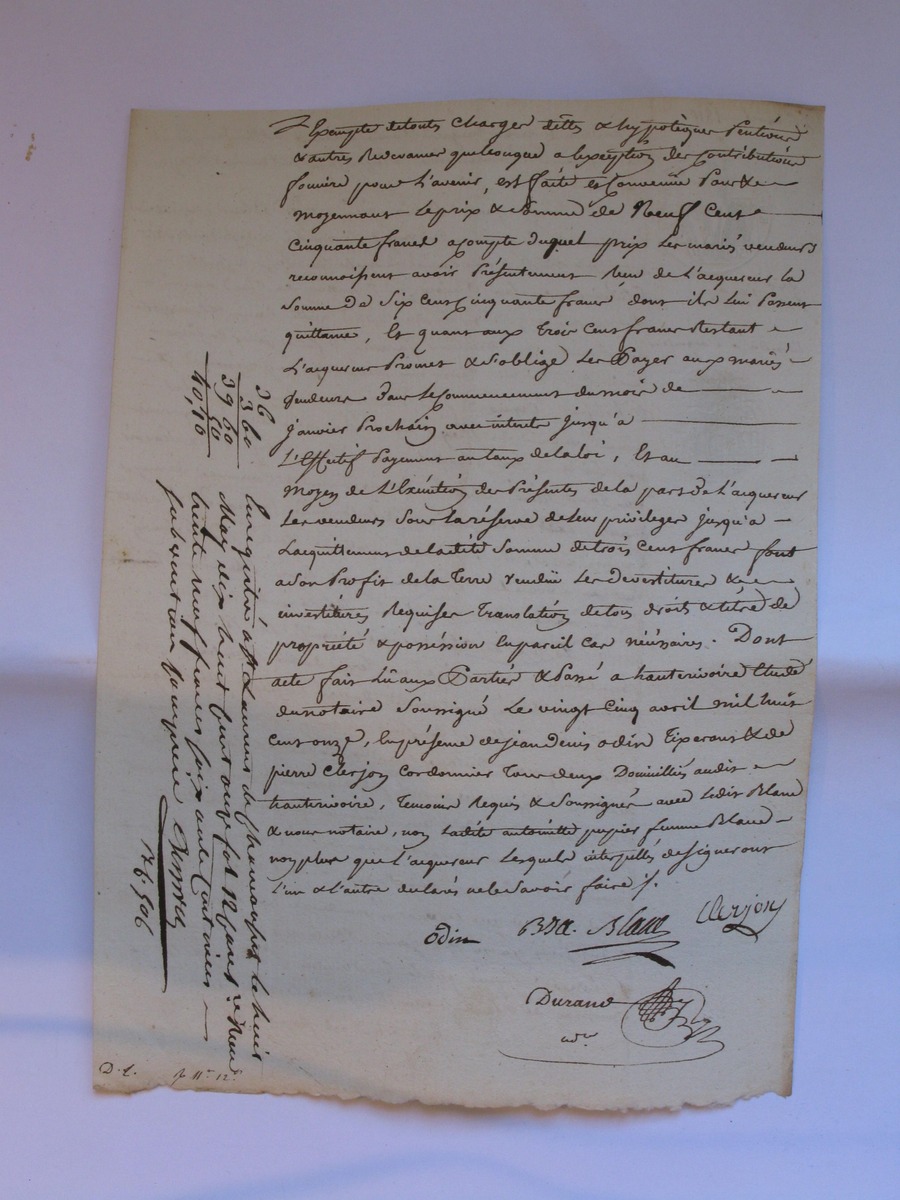 Exempte de touts charges dettes & hypotèques Pentions
& autres Redevances quelconque a lexception des Contributions
fonciere pour l'avenir, est faite et Convenüe Pour &
moyennant Le prix & Somme de Neuf Cent
Cinquante francs acompte duquel prix Les mariés vendeurs
reconnoissent avoir Présentement Reçu de L'acquereur La
Somme de Six Cent Cinquante francs dont ils Lui Passent
quittance, Et quant aux trois Cent francs Restant
L'acquereur Promet & Soblige Les Payer aux mariés
vendeurs Dans Le Commencement du mois de
janvier Prochain avec interets Jusqu'a
L'Effectif Payement au taux de la loi, Et au
moyen de L'Exécution des Présentes de la part De L'acquereur
Les vendeurs Sous la réserve de leur privileges jusqu'a
Lacquittement de ladite Somme de trois Cent francs font
a Son Profit de la Terre vendüe Les Devestitures &
investitures Requises Translation de tous droits & titres de
propriété & possession En pareil cas nécessaires. Dont
acte fait Lû aux Parties & Passé a hauterivoire Etude
du notaire Soussigné Le vingt Cinq avril mil huit
cent onze, En présence de jean Denis odin Tixerant & de
pierre Clerjon Cordonnier Tous deux Domiciliés audit
hauterivoire, Temoins Requis & Soussignés avec Ledit Blanc
& nous notaire, non Ladite antoinette pupier femme Blanc
non plus que L'acquereur Lesquels interpellés de Signer ont
L'un & L'autre déclaré ne le Savoir faire ./.
odin Blanc Clerjon
Durand
36
3 60
39 60
50
40,10
Enregistré à St Laurent de Chamousset le huit
May dix huit cent onze fol 128 Reçu
trente neuf francs soixante Centimes
subvention comprise
D. L.